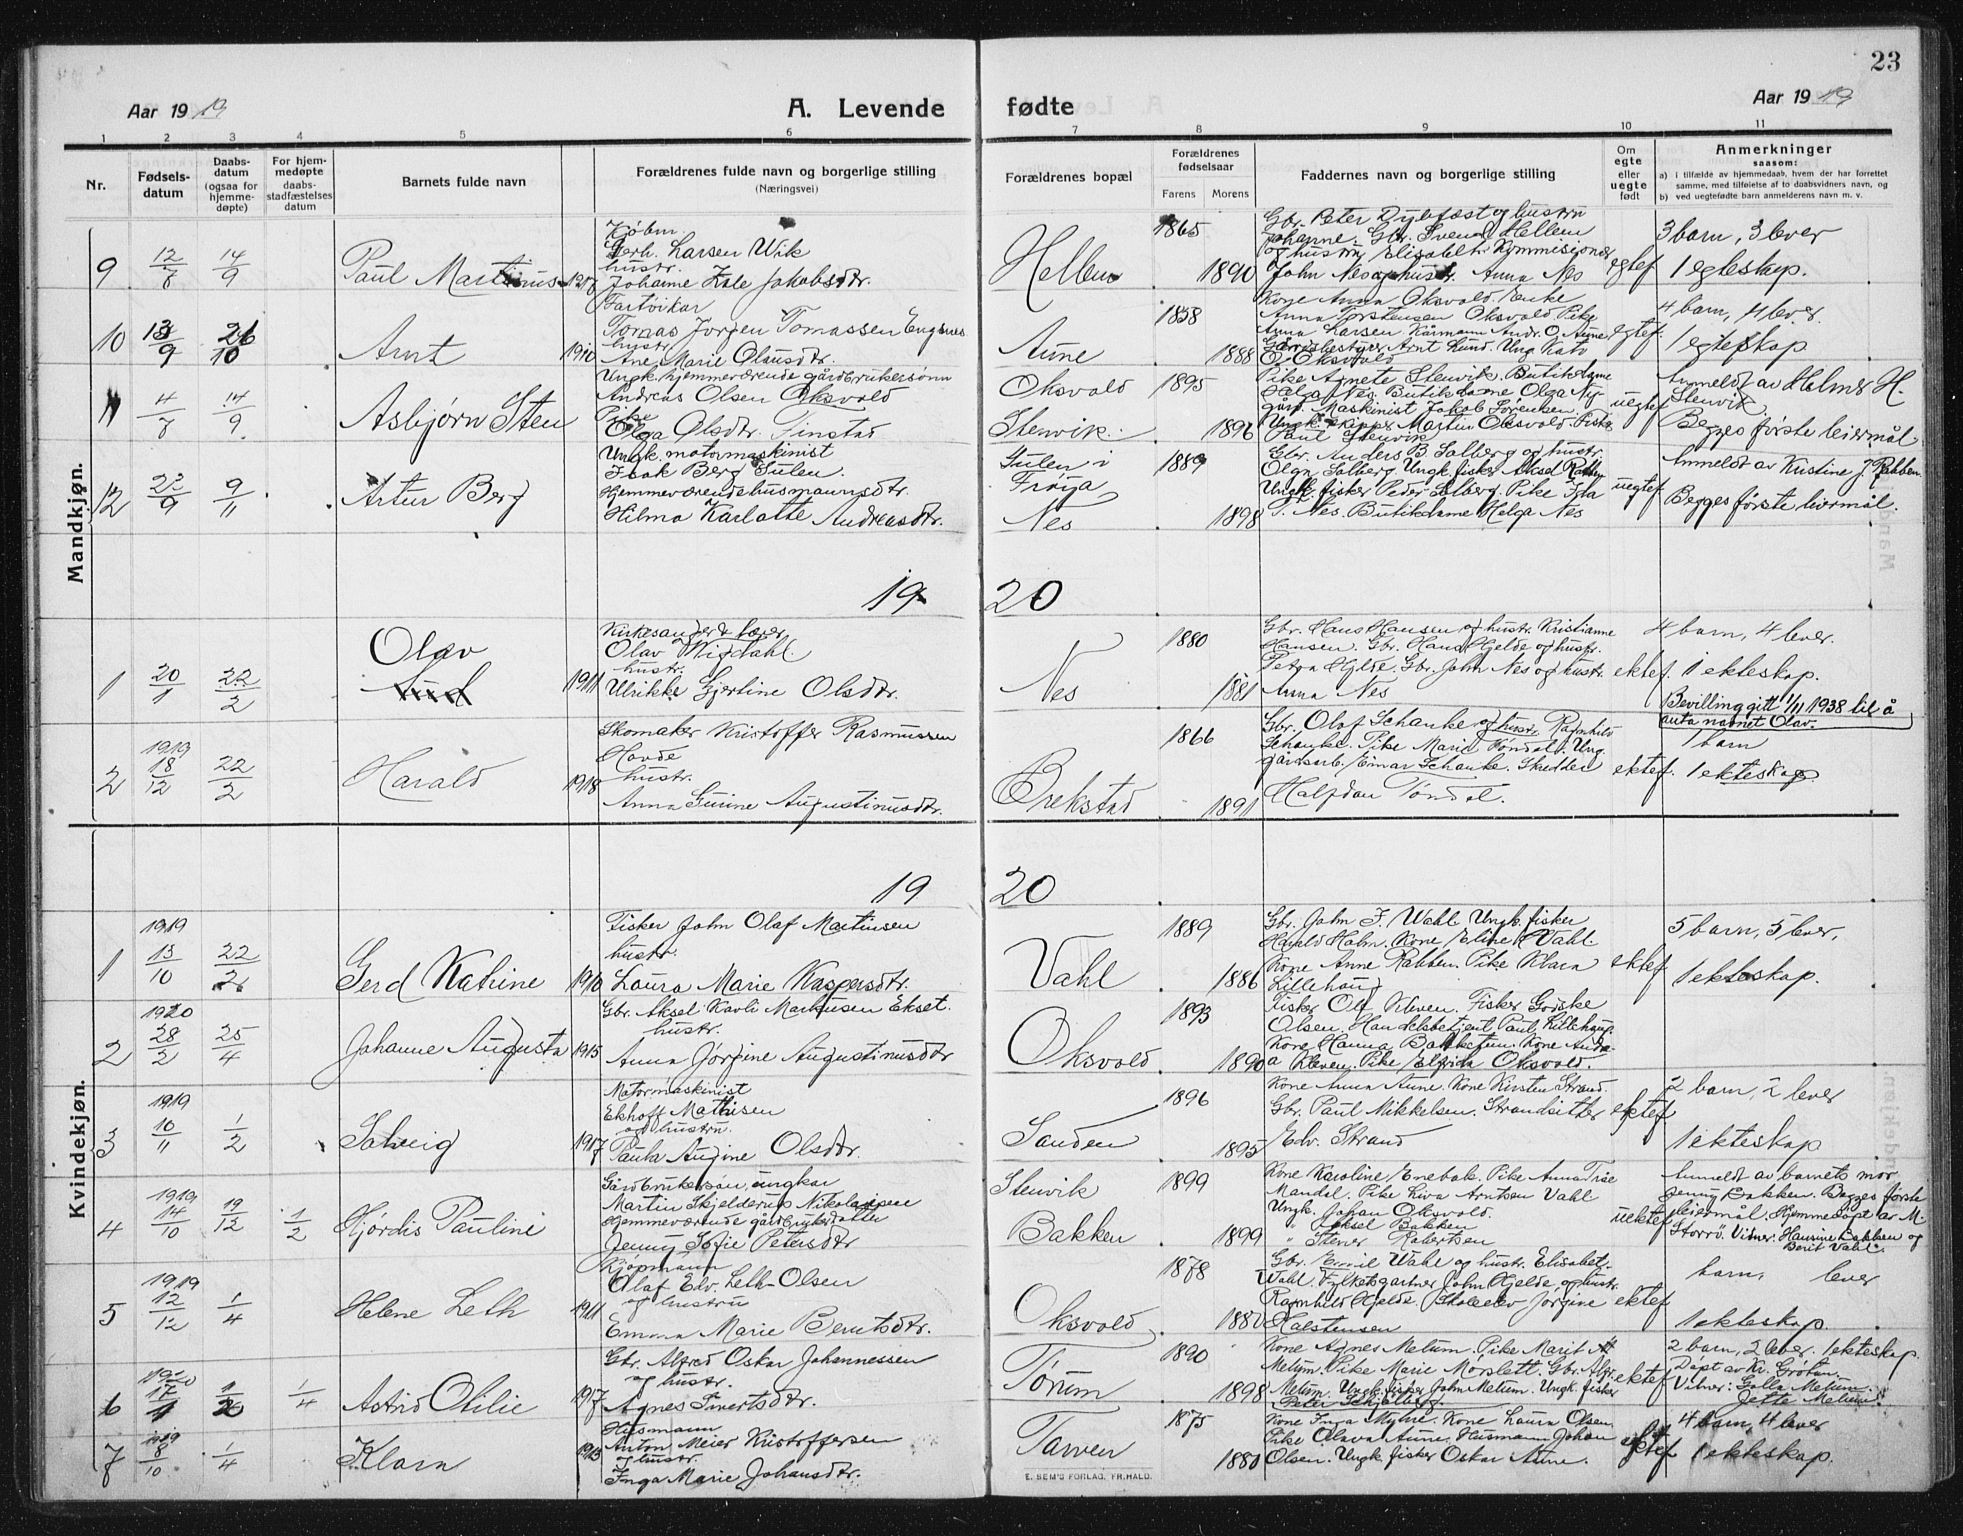 23
Aar 1919
A. Levende
fødte
Aar 1919
1 2 3 4 5 6 7 8 9 10 11
Nr.
Fødsels-
datum
Daabs-
datum
(ogsaa for
hjemme-
døpte)
For hjem-
medøpte
daabs-
stadfæstelses
datum
Barnets fulde navn
Forældrenes fulde navn og borgerlige stilling
(Næringsvei)
Forældrenes bopæl
Forældrenes
fødselsaar
Farens Morens
Faddernes navn og borgerlige stilling
Om
egte
eller
uegte
født
Anmerkninger
saasom:
a) i tilfælde av hjemmedaab, hvem der har forrettet
samme, med tilføielse af to daabsvidners navn, og
b) ved uegtefødte barn anmelderens navn m. v.
Mandkjøn.
9 12/7 14/9 Paul Martinus
Larsen Wik
hustr.
Johanne Jakobsdtr.
Hellem 1865 1890
Gbr. Peter Dybfest og hustru
Johanne. Gbr. Svend Hellem
og hustru Elisabeth. Kommisjonær
John Nes og hustr. Anna Nes
egtef.
3 barn, 3 lever
1 egteskap.
10 13/9 26/10 Arnt 1910
Tomas Jørgen Tomassen Engsnes
hustr.
Ane Marie Olausdtr.
Aune 1858 1888
Kone Anna Oksvold. Enke
Anna Torstensen Oksvold Pike
Anna Larsen. Andr. O. Aune
Arnt Lund. Ung.
O. Oksvold
egtef.
4 barn, 4 lever.
1 egteskap
11 4/7 14/9 Asbjørn Sten
Ungk. hjemmeværende gårdbrukersønn
Andreas Olsen Oksvold
Pike
Olga Olsdtr. Tinstad
Oksvold
Stenvik. 1895 1896
Pike Agnete Stenvik. Butikdame
Helga Nes. Butikdame Olga Ny-
gård. Maskinist Jakob Sørensen.
Ungk. Martin Oksvold. Fisker
Paul Stenvik
uegtef
Anmeldt av Helmer H.
Stenvik
Begges første leiermål.
12 22/9 9/11 Artur Berg
Ungk. motormaskinist
Isak Berg Sulen.
Hjemmeværende husmannsdtr.
Hilma Karlotte Andreasdtr.
Sulen i
Frøya
Nes 1889 1898
Gbr. Anders B. Solberg og hustr.
Olga Solberg. Ungk. fisker Aksel
Ungk. fisker Peder Solberg. Pike
Nes. Butikdame Helga Nes
uegtef.
Anmeldt av Kristine J Rabben
Begges første leiermål.
19 20
1 20/1 22/2 Olav 1911
Kirkesanger & lærer
Olav Migdahl
hustr.
Ulrikke Gjertine Olsdtr.
Nes 1880 1881
Gbr. Hans Hansen og hustr. Kristianne
Hansen. Gbr. Hans Hjelde og hustr.
Petra Hjelde. Gbr. John Nes og hustr
Anna Nes
ektef.
4 barn, 4 lever.
1 ekteskap.
Bevilling gitt 1/11 1938 til å
anta navnet Olav.
2 1919 18/12 22/2 Harald 1918
Skomaker Kristoffer Rasmussen
Hovde
hustr.
Anna Gurine Augustinusdtr.
Brekstad 1866 1891
Gbr. Olaf Schanke og hustr. Ragnhild
Schanke. Pike Marie Tøndel. Ung.
gårdsarb. Einar Schanke. Skredder
Halfdan Tøndel.
ektef.
1 barn
1 ekteskap.
Kvindekjøn.
19 20
1 1919 13/10 22/2 Gerd Katrine 1910
Fisker John Olaf Martinsen
hustr.
Laura Marie Kaspersdtr.
Vahl 1889 1886
Gbr. John F. Wahl. Ungk. fisker
Harald Holm. Kone Eline Vahl.
Kone Anne Rabben. Pike Klara
Lillehaug
ektef
5 barn, 5 lever,
1 ekteskap.
2 1920 28/2 25/4 Johanne Augusta 1915
Gbr. Aksel Kavli Markusen Ekset.
hustr.
Anna Jørgine Augustinusdtr
Oksvold 1893 1890
Fisker Ole Kleven. Fisker Godske
Olsen. Handelsbetjent Paul Lillehaug.
Kone Hanna Bakketun. Kone Andre-
a Kleven. Pike Elfrida Oksvold.
3 1919 10/11 1/2 Solveig 1917
Motormaskinist
Ekhoff Mathisen
og hustru.
Paula Augine Olsdtr.
Sanden 1896 1895
Kone Anna Aune. Kone Kirsten Strand.
Gbr. Paul Mikkelsen. Strandsitter
Edv. Strand
ektef
2 barn, 2 lever
1 ekteskap
4 1919 14/10 19/12 1/2 Hjørdis Pauline
Gårdbrukersøn, ungkar
Martin Skjelderup Nikolaisen
Hjemmeværende gårdbrukerdatter
Jenny Sofie Petersdtr
Stenvik
Bakken 1899 1899
Kone Karoline Enebak. Pike Anna
Mandal. Pike Liva Arntsen Vahl
Ungk. Johan Oksvold.
" Aksel Bakken
" Stener Robertsen
uektef
Anmeldt av barnets mor
Jenny Bakken. Begges første
leiermål. Hjemmedøpt av M.
Storrø. Vitner: Hansine Bakken og
Berit Vahl.
5 1919 12/12 1/4 Helene Leth 1911
Kjøpmann
Olaf Edv. Leth-Olsen
og hustru
Emma Marie Berntsdtr.
Oksvold 1878 1880
Gbr. Emil Wahl og hustr. Elisabet
Wahl. Fylkesgartner John Hjelde og hustr.
Ragnhild Hjelde. Skoleelev Jørgine
Halstensen
ektef
barn, lever
1 ekteskap.
6 1920 17/1 1/4 Astrid Otilie 1917
Gbr. Alfred Oskar Johannessen
og hustr.
Agnes Sivertsdtr.
Tørum 1890 1898
Kone Agnes Melum. Pike Marit
Melum. Pike Marie Mørslett. Gbr. Alfr.
Melum. Ungk. fisker John Melum. Ungk. fisker
Peter Schjølberg.
ektef
2 barn, 2 lever. 1 ekteskap
Døpt av Kr. Grötan.
Vitner: Golla Melum.
Jette Melum.
7 1919 8/10 1/4 Klara 1913
Husmann
Anton Meier Kristoffersen
og hustr.
Inga Marie Johansdtr.
Tarven 1875 1880
Kone Inga Myhre. Kone Laura Olsen.
Pike Olava Aune. Husmann Johan
Olsen. Ungk. fisker Oskar Aune.
ektef
4 barn, 4 lever
1 ekteskap.
E. SEM'S FORLAG, FR.HALD.